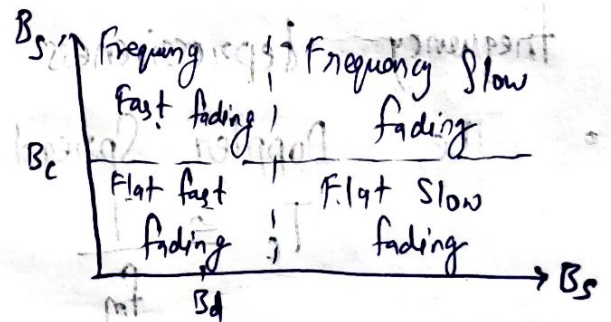 Bs
Frequeng
Fast fading
Frequency Slow
fading
Bc
Flat fast
fading
Flat Slow
fading
Bs
Bd